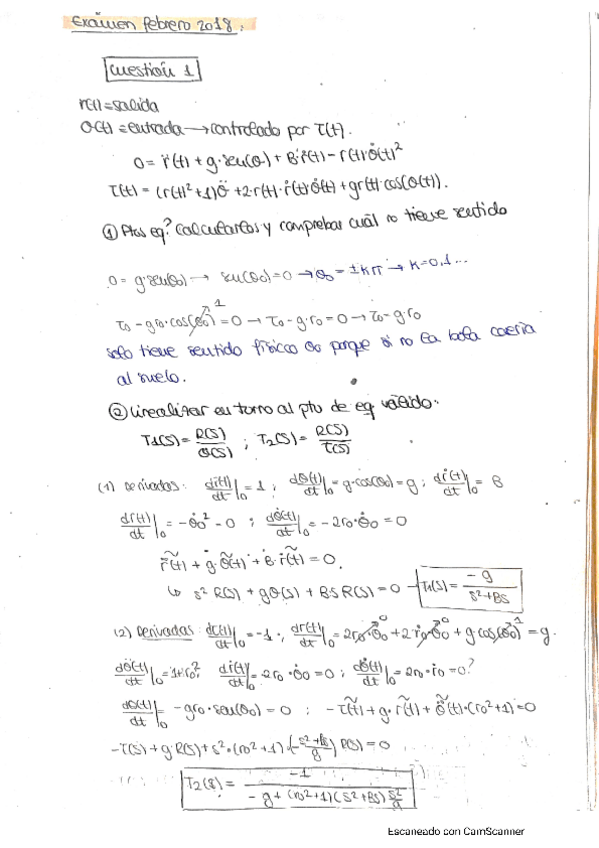 Exámen febrero 2018.
Cuestión 1
r(t)=salida
θ(t) = entrada → controlado por τ(t).
0 = r̈(t) + g·sen(θ) + B·ṙ(t) - r(t)·θ̇(t)²
τ(t) = (r(t)²+1)θ̈ + 2·r(t)·ṙ(t)·θ̇(t) + gr(t)·cos(θ(t)).
① Ptos eq? Calcularlos y comprobar cuál no tiene sentido
0 = g·sen(θ0) → sen(θ0) = 0 → θ0 = ±kπ → k=0,1...
τ0 - g·r0·cos(θ0)↗1 = 0 → τ0 - g·r0 = 0 → τ0 = g·r0
solo tiene sentido físico θ0 porque si no la bola caería
al suelo.
② Linealizar en torno al pto de eq válido.
T1(s) = R(s)/θ(s) ; T2(s) = R(s)/τ(s)
(1) Derivadas: dr̈(t)/dt|0 = 1 ; dθ(t)/dt|0 = g·cos(θ0) = g ; dṙ(t)/dt|0 = B
dr(t)/dt|0 = -θ̇0² = 0 ; dθ̇(t)/dt|0 = -2r0·θ̇0 = 0
r̈̃(t) + g·θ̃(t) + B·ṙ̃(t) = 0.
↳ s² R(s) + gθ(s) + BS R(s) = 0 → T1(s) = -g/(s²+BS)
(2) Derivadas: dτ(t)/dt|0 = -1 ; dr(t)/dt|0 = 2r0·θ̈0↗0 + 2ṙ0·θ̇0↗0 + g cos(θ0)↗1 = g.
dθ̈(t)/dt|0 = 1+r0² ; dṙ(t)/dt|0 = 2r0·θ̇0 = 0 ; dθ̇(t)/dt|0 = 2r0·ṙ0 = 0?
dθ(t)/dt|0 = -gr0·sen(θ0) = 0 ; -τ̃(t) + g·r̃(t) + θ̈̃(t)·(r0²+1) = 0
-τ(s) + g R(s) + s²·(r0²+1)·(-(s²+Bs)/g) R(s) = 0
T2(s) = -1/(-g + (r0²+1)(s²+BS) s²/g)
Escaneado con CamScanner